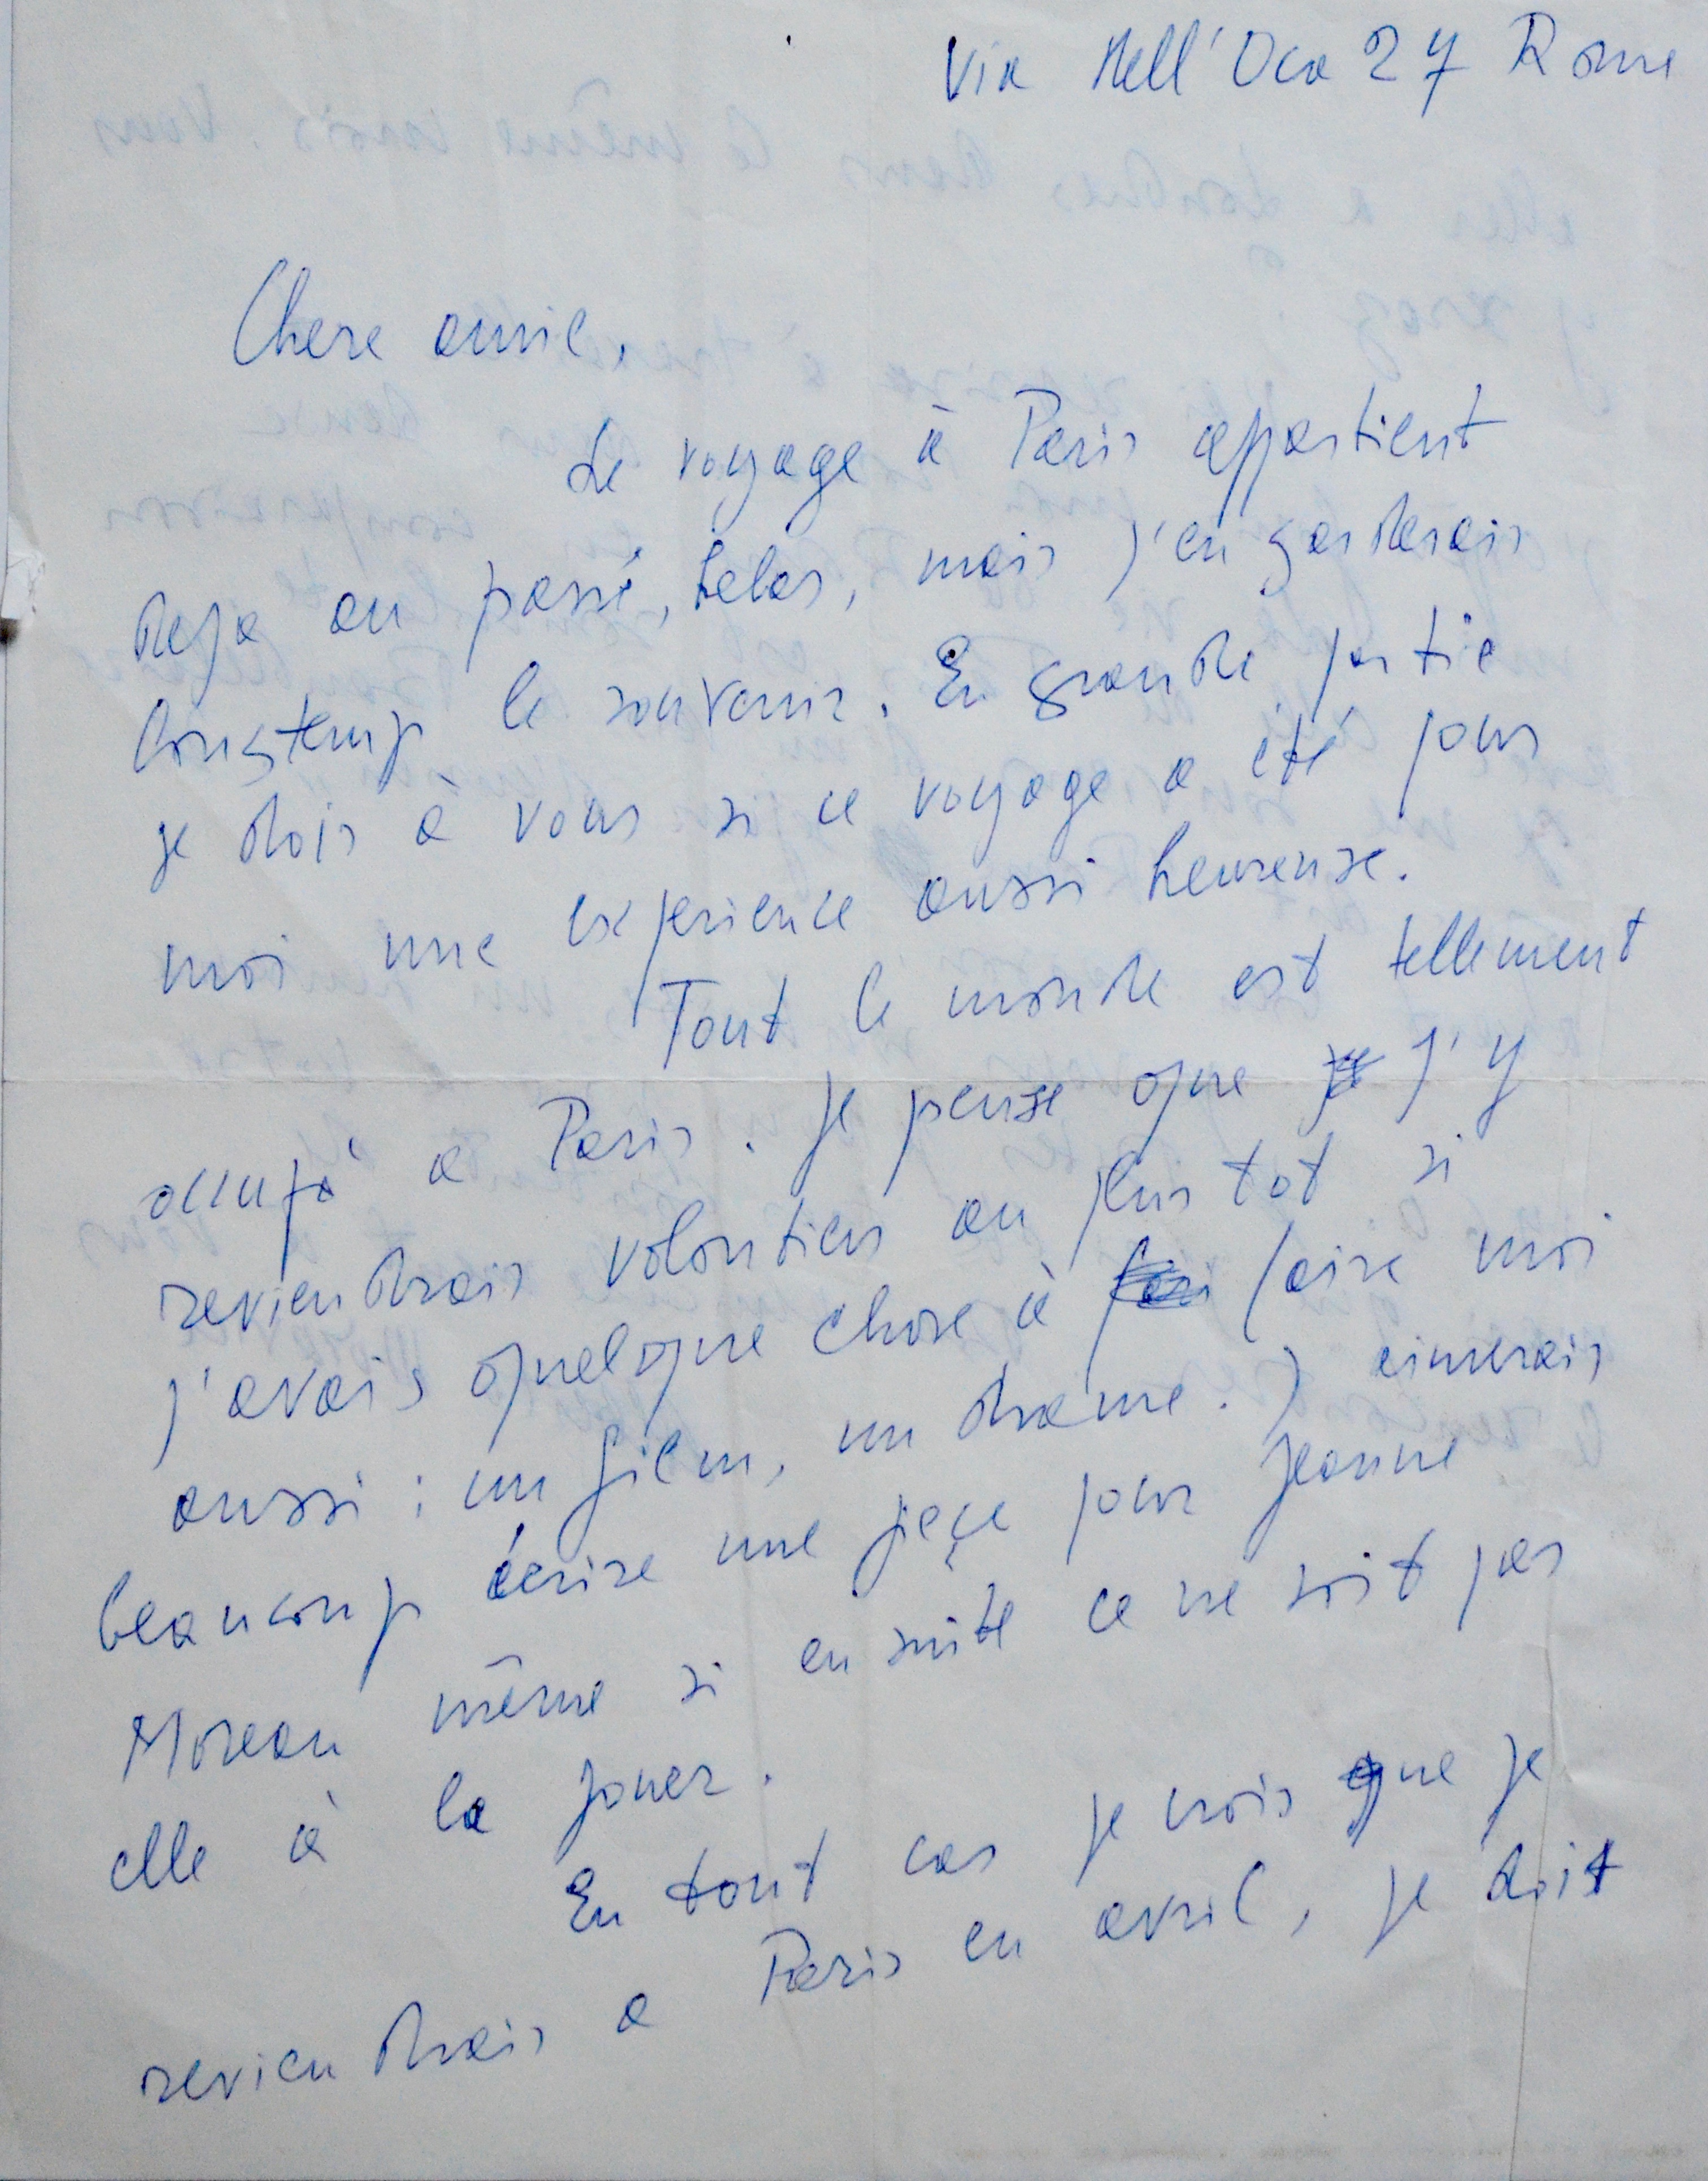 Via dell'Oca 27 Rome
Chere amie,
Le voyage à Paris appartient
deja au passé, helas, mais j'en garderais
longtemp le souvenir. En grande partie
je dois à vous si ce voyage a été pour
moi une experience aussi heureuse.
Tout le monde est tellement
occupé a Paris. Je pense que je j'y
reviendrais volontiers au plus tot si
j'avais quelque chose à fai faire moi
aussi : un film, un drame. J'aimerais
beaucoup écrire une pieçe pour Jeanne
Moreau même si en suite ce ne soit pas
elle à la jouer.
En tout cas je crois que je
reviendrais a Paris en avril, je doit